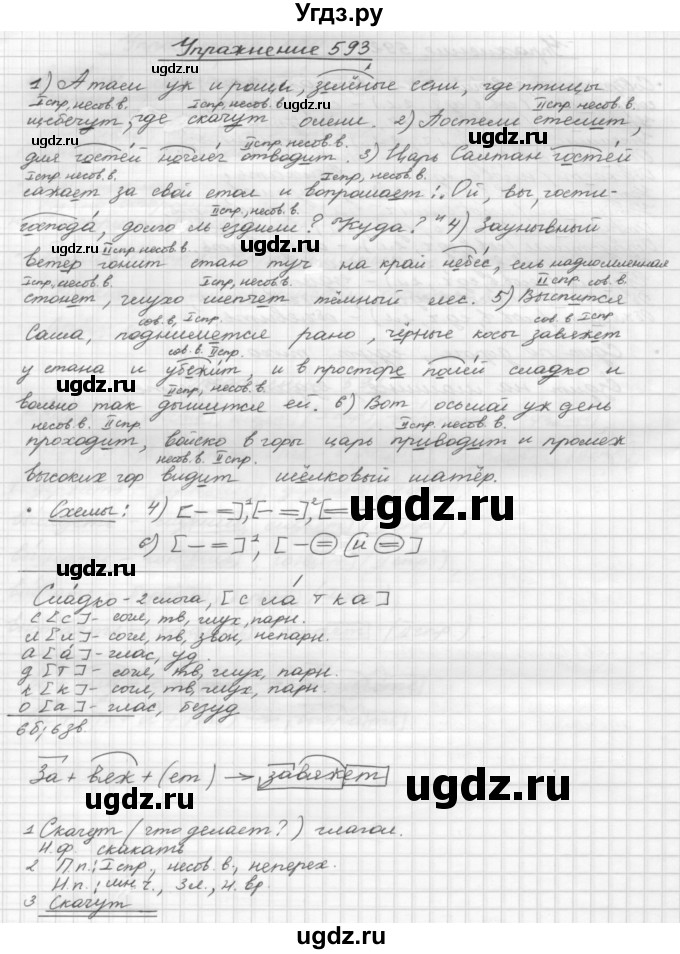 Угдз.ру
Упражнение 593
1) А там уж и рощи, зелёные сени, где птицы
I спр, несов. в. I спр, несов. в. II спр несов. в.
щебечут, где скачут олени. 2) Постели стелит,
II спр, несов. в.
для гостей ночлег отводит. 3) Царь Салтан гостей
I спр несов. в. I спр, несов. в.
сажает за свой стол и вопрошает: „Ой, вы, гости-
II спр, несов. в.
господа, долго ль ездили? Куда?" 4) Заунывный
II спр несов. в.
ветер гонит стаю туч на край небес, ель надломленная
I спр, несов. в. I спр, несов. в. II спр сов. в.
стонет, глухо шепчет тёмный лес. 5) Выспится
сов. в, I спр. сов. в I спр
Саша, поднимется рано, чёрные косы завяжет
сов. в. II спр.
у стана и убежит, и в просторе полей сладко и
II спр, несов. в.
вольно так дышится ей. 6) Вот осьмой уж день
несов. в. II спр. II спр. несов. в.
проходит, войско в горы царь приводит и промеж
несов. в. II спр.
высоких гор видит шёлковый шатёр.
• Схемы: 4) [– =]¹, [– =]², [=
6) [– =]¹, [– (=) (и (=)]
Сладко – 2 слога, [с л а т к а]
с [с] – согл, тв, глух, парн.
л [л] – согл, тв, звон, непарн.
а [а] – глас, уд.
д [т] – согл, тв, глух, парн.
к [к] – согл, тв, глух, парн.
о [а] – глас, безуд
6 б, 6 зв.
За + вяж + (ет) → завяжет
1 Скачут (что делает?) глагол.
Н.ф скакать
2 П.п.: I спр., несов. в., неперех.
Н.п.: мн ч., 3 л., н. вр.
3. Скачут
ugdz.ru
ugdz.ru
ugdz.ru
ugdz.ru
ugdz.ru
ugdz.ru
ugdz.ru
ugdz.ru
ugdz.ru
ugdz.ru
ugdz.ru
ugdz.ru